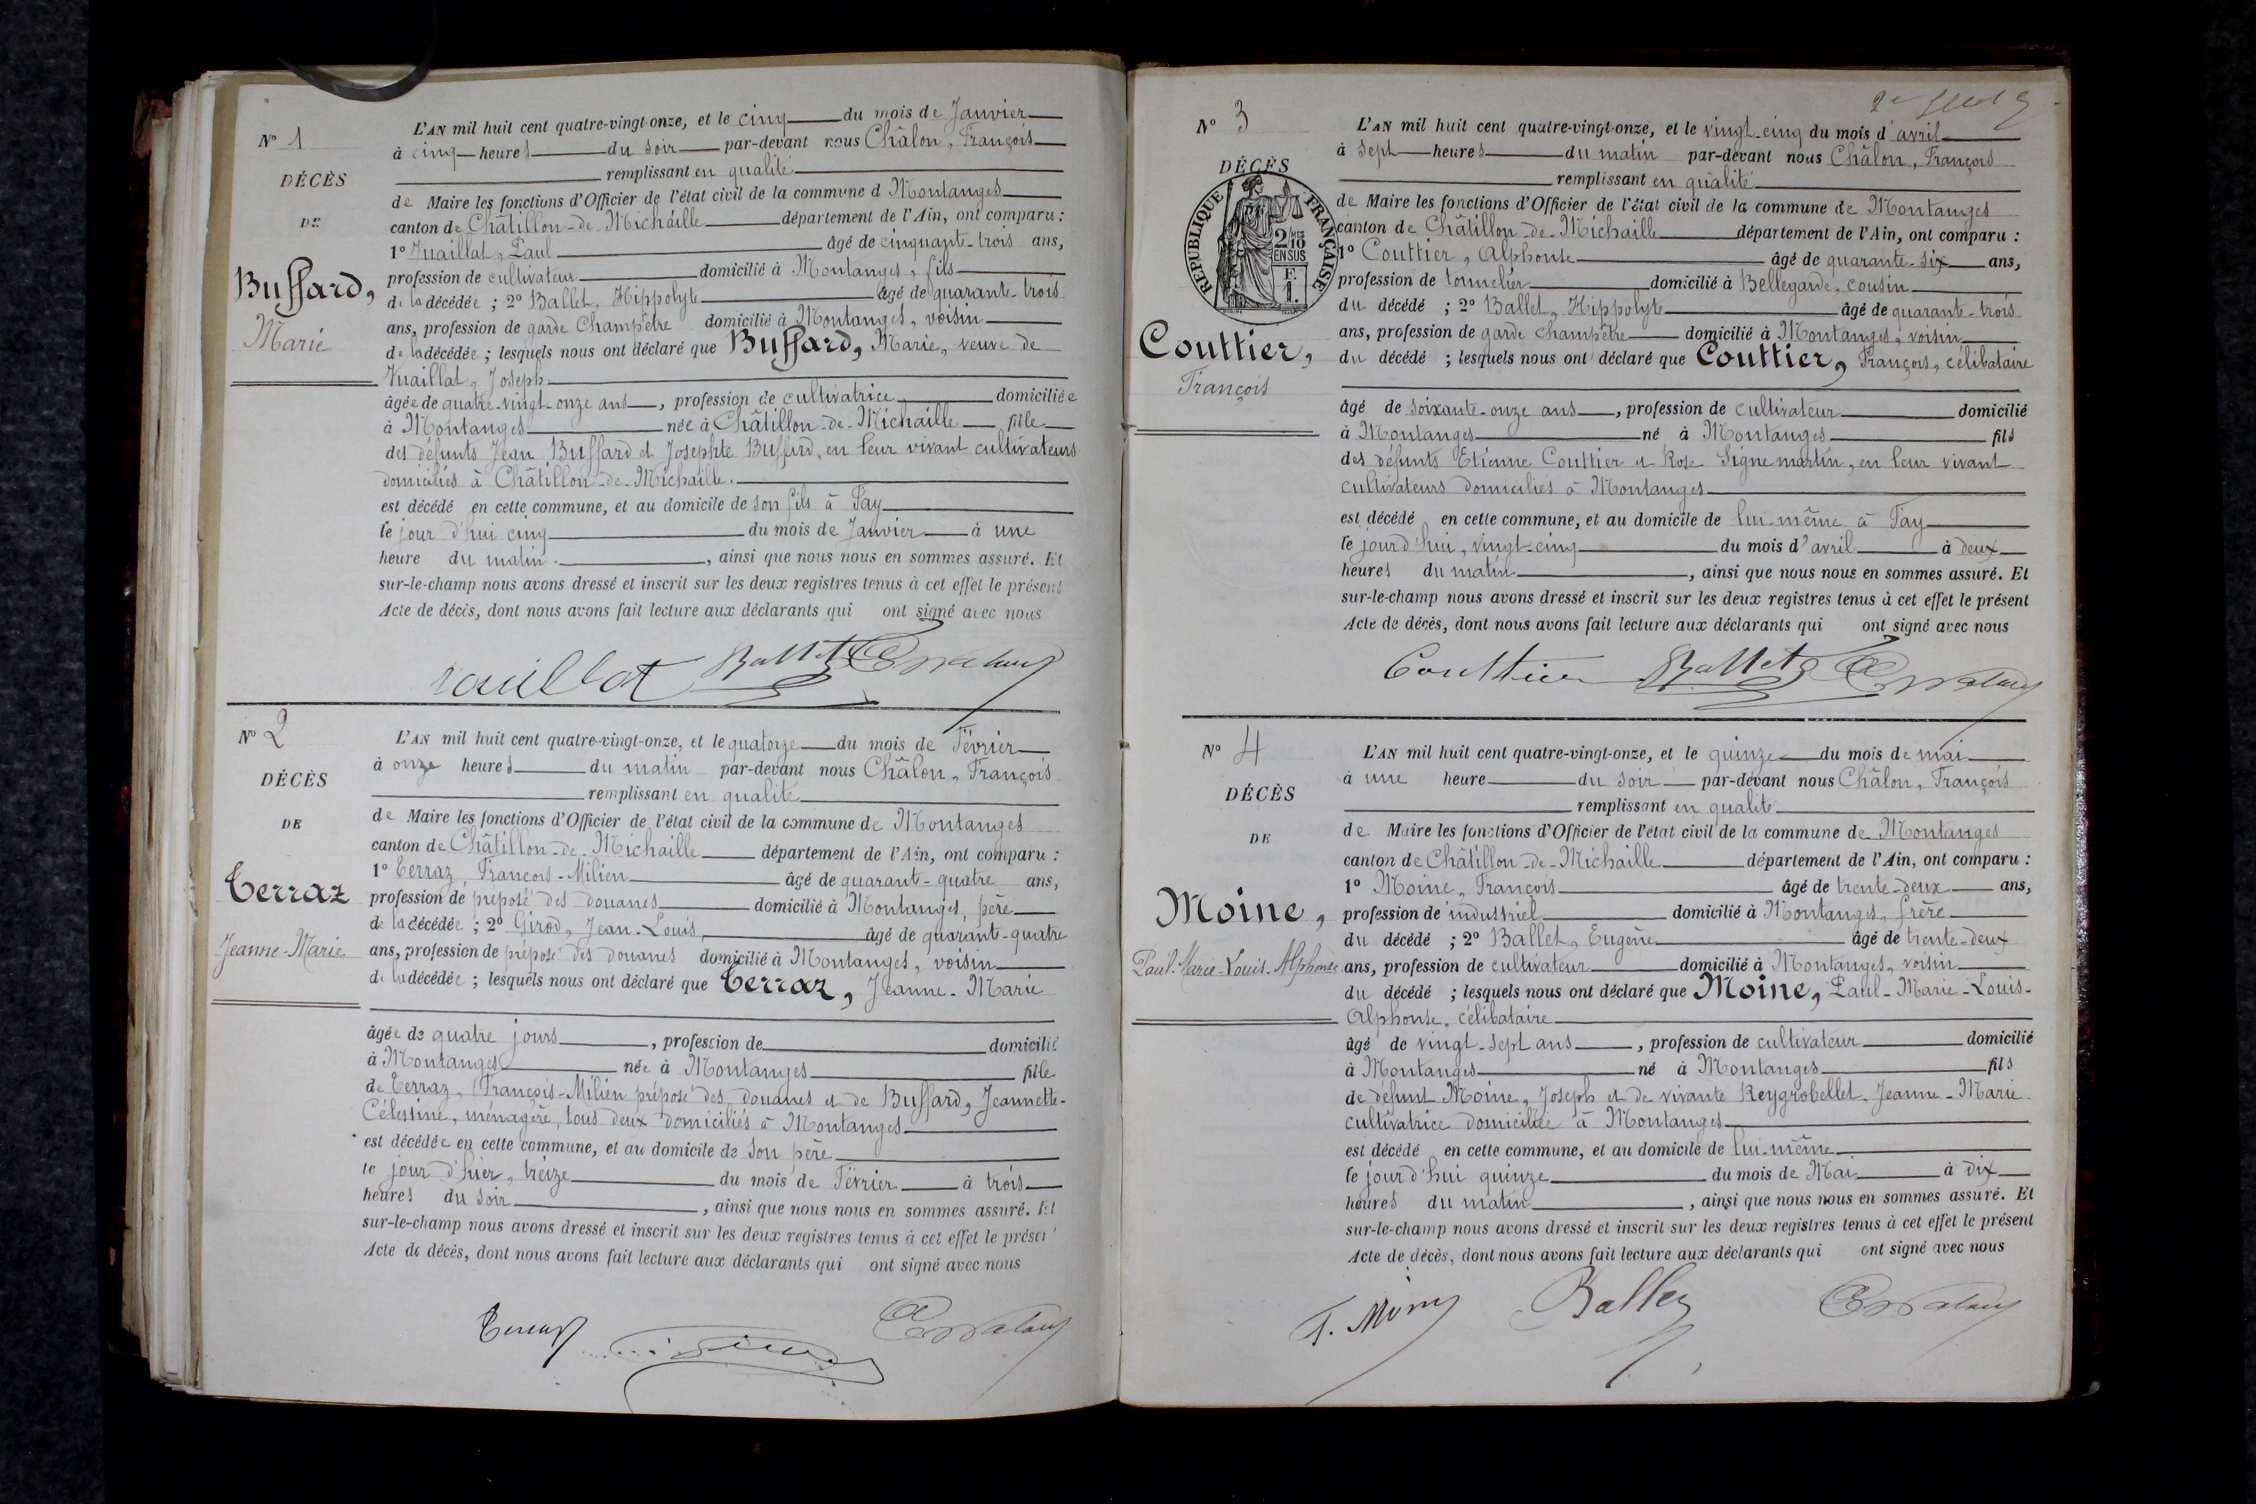 Nº 1
DÉCÈS
DE
Buffard,
Marie
L'AN mil huit cent quatre-vingt-onze, et le cinq du mois de Janvier
à cinq heures du soir par-devant nous Châlon, François
remplissant en qualité
de Maire les fonctions d'Officier de l'état civil de la commune d Montanges
canton de Châtillon-de-Michaille département de l'Ain, ont comparu :
1º Vuaillat, Paul âgé de cinquante-trois ans,
profession de cultivateur domicilié à Montanges, fils
de la décédée ; 2º Ballet, Hippolyte âgé de quarante-trois
ans, profession de garde champêtre domicilié à Montanges, voisin
de la décédée ; lesquels nous ont déclaré que Buffard, Marie, veuve de
Vuaillat, Joseph
âgée de quatre-vingt-onze ans, profession de cultivatrice, domiciliée
à Montanges née à Châtillon-de-Michaille fille
des défunts Jean Buffard et Josephte Buffard, en leur vivant cultivateurs
domiciliés à Châtillon-de-Michaille.
est décédé en cette commune, et au domicile de son fils à Fay
le jour d'hui cinq du mois de Janvier à une
heure du matin, ainsi que nous nous en sommes assuré. Et
sur-le-champ nous avons dressé et inscrit sur les deux registres tenus à cet effet le présent
Acte de décès, dont nous avons fait lecture aux déclarants qui ont signé avec nous
vuillat Ballet
Nº 2
DÉCÈS
DE
Terraz
Jeanne-Marie
L'AN mil huit cent quatre-vingt-onze, et le quatorze du mois de Février
à onze heures du matin par-devant nous Châlon, François
remplissant en qualité
de Maire les fonctions d'Officier de l'état civil de la commune de Montanges
canton de Châtillon-de-Michaille département de l'Ain, ont comparu :
1º Terraz, François-Milien âgé de quarant-quatre ans,
profession de préposé des douanes domicilié à Montanges, père
de la décédée ; 2º Girod, Jean-Louis, âgé de quarant-quatre
ans, profession de préposé des douanes domicilié à Montanges, voisin
de la décédée ; lesquels nous ont déclaré que Terraz, Jeanne-Marie
âgée de quatre jours, profession de domicilié
à Montanges née à Montanges fille
de Terraz, François-Milien préposé des douanes et de Buffard, Jeannette-
Célestine, ménagère, tous deux domiciliés à Montanges
est décédée en cette commune, et au domicile de son père
le jour d'hier, treize du mois de Février à trois
heures du soir, ainsi que nous nous en sommes assuré. Et
sur-le-champ nous avons dressé et inscrit sur les deux registres tenus à cet effet le présent
Acte de décès, dont nous avons fait lecture aux déclarants qui ont signé avec nous
Terraz
Nº 3
DÉCÈS
RÉPUBLIQUE FRANÇAISE
2/10 EN SUS
F. 1.
Couttier,
François
L'AN mil huit cent quatre-vingt-onze, et le vingt-cinq du mois d'avril
à sept heures du matin par-devant nous Châlon, François
remplissant en qualité
de Maire les fonctions d'Officier de l'état civil de la commune de Montanges
canton de Châtillon-de-Michaille département de l'Ain, ont comparu :
1º Couttier, Alphonse âgé de quarante-six ans,
profession de tonnelier domicilié à Bellegarde, cousin
du décédé ; 2º Ballet, Hippolyte âgé de quarante-trois
ans, profession de garde champêtre domicilié à Montanges, voisin
du décédé ; lesquels nous ont déclaré que Couttier, François, célibataire
âgé de soixante-onze ans, profession de cultivateur domicilié
à Montanges né à Montanges fils
des défunts Etienne Couttier et Rose Signemartin, en leur vivant
cultivateurs domiciliés à Montanges
est décédé en cette commune, et au domicile de lui-même à Fay
le jourd'hui, vingt-cinq du mois d'avril à deux
heures du matin, ainsi que nous nous en sommes assuré. Et
sur-le-champ nous avons dressé et inscrit sur les deux registres tenus à cet effet le présent
Acte de décès, dont nous avons fait lecture aux déclarants qui ont signé avec nous
Couttier Ballet
Nº 4
DÉCÈS
DE
Moine,
Paul-Marie-Louis-Alphonse
L'AN mil huit cent quatre-vingt-onze, et le quinze du mois de mai
à une heure du soir par-devant nous Châlon, François
remplissant en qualité
de Maire les fonctions d'Officier de l'état civil de la commune de Montanges
canton de Châtillon-de-Michaille département de l'Ain, ont comparu :
1º Moine, François âgé de trente-deux ans,
profession de industriel domicilié à Montanges, frère
du décédé ; 2º Ballet, Eugène âgé de trente-deux
ans, profession de cultivateur domicilié à Montanges, voisin
du décédé ; lesquels nous ont déclaré que Moine, Paul-Marie-Louis-
Alphonse, célibataire
âgé de vingt-sept ans, profession de cultivateur domicilié
à Montanges né à Montanges fils
de défunt Moine, Joseph et de vivante Reygrobellet, Jeanne-Marie
cultivatrice domiciliée à Montanges
est décédé en cette commune, et au domicile de lui-même
le jourd'hui quinze du mois de Mai à dix
heures du matin, ainsi que nous nous en sommes assuré. Et
sur-le-champ nous avons dressé et inscrit sur les deux registres tenus à cet effet le présent
Acte de décès, dont nous avons fait lecture aux déclarants qui ont signé avec nous
Ballet